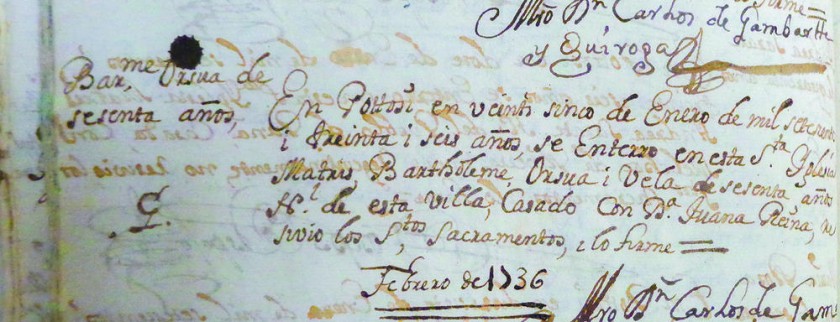 Mro Dn Carlos de Gambartte
y Quiroga
Barme Orsua de
sesenta años,
En Pottosi en veinti sinco de Enero de mil setesien
i treinta i seis años, se Enterro en esta Sta Yglesia
Matris, Bartholeme Orsua i Vela de sesenta años
Nl de esta villa, Casado Con Da Juana Reina, re
sivio los Stos Sacramentos, i lo firme
Febrero de 1736
Mro Dn Carlos de Gam